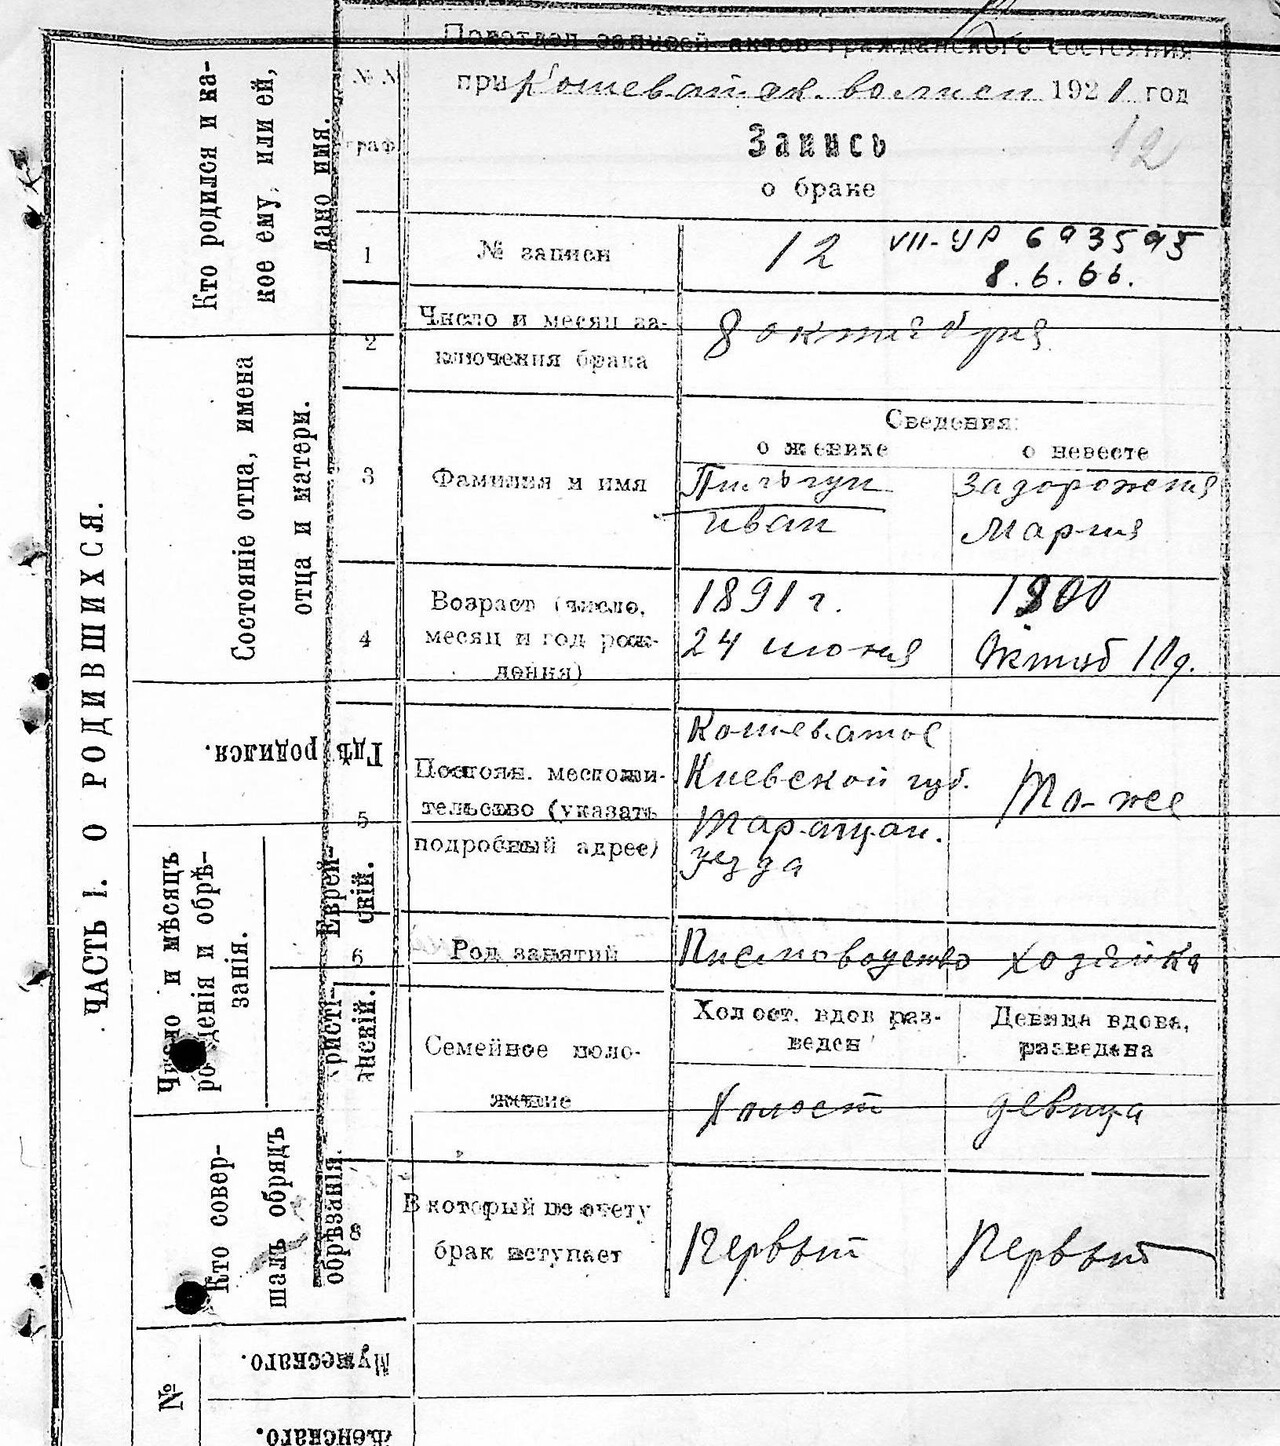 Подотдел записей актов гражданского состояния
при Кошеватск. волисп 1921 год
Запись
12
о браке
№ №
граф
1
№ записи
12
VII-УР 693595
8.6.66.
2
Число и месяц за-
ключения брака
8 октября
Сведения:
о женихе
о невесте
3
Фамилия и имя
Пильгун
Иван
Задорожняя
Мария
4
Возраст (число,
месяц и год рож-
дения)
1891 г.
24 июня
1900
Октяб 11 д.
5
Постоян. местожи-
тельство (указать
подробный адрес)
Кошеватое
Киевской губ.
Таращан.
уезда
То-же
6
Род занятий
Письмоводство
Хозяйка
Семейное поло-
жение
Холост. вдов раз-
веден
Девица вдова,
разведена
Холост
девица
8
В который по счету
брак вступает
Первый
Первый
ЧАСТЬ I. О РОДИВШИХСЯ.
Кто родился и ка-
кое ему, или ей,
дано имя.
Состояніе отца, имена
отца и матери.
Гдѣ родился.
Число и мѣсяцъ
рожденія и обрѣ-
занія.
Еврей-
скій.
Христі-
анскій.
Кто совер-
шалъ обрядъ
обрѣзанія.
№
Мужескаго.
Женскаго.